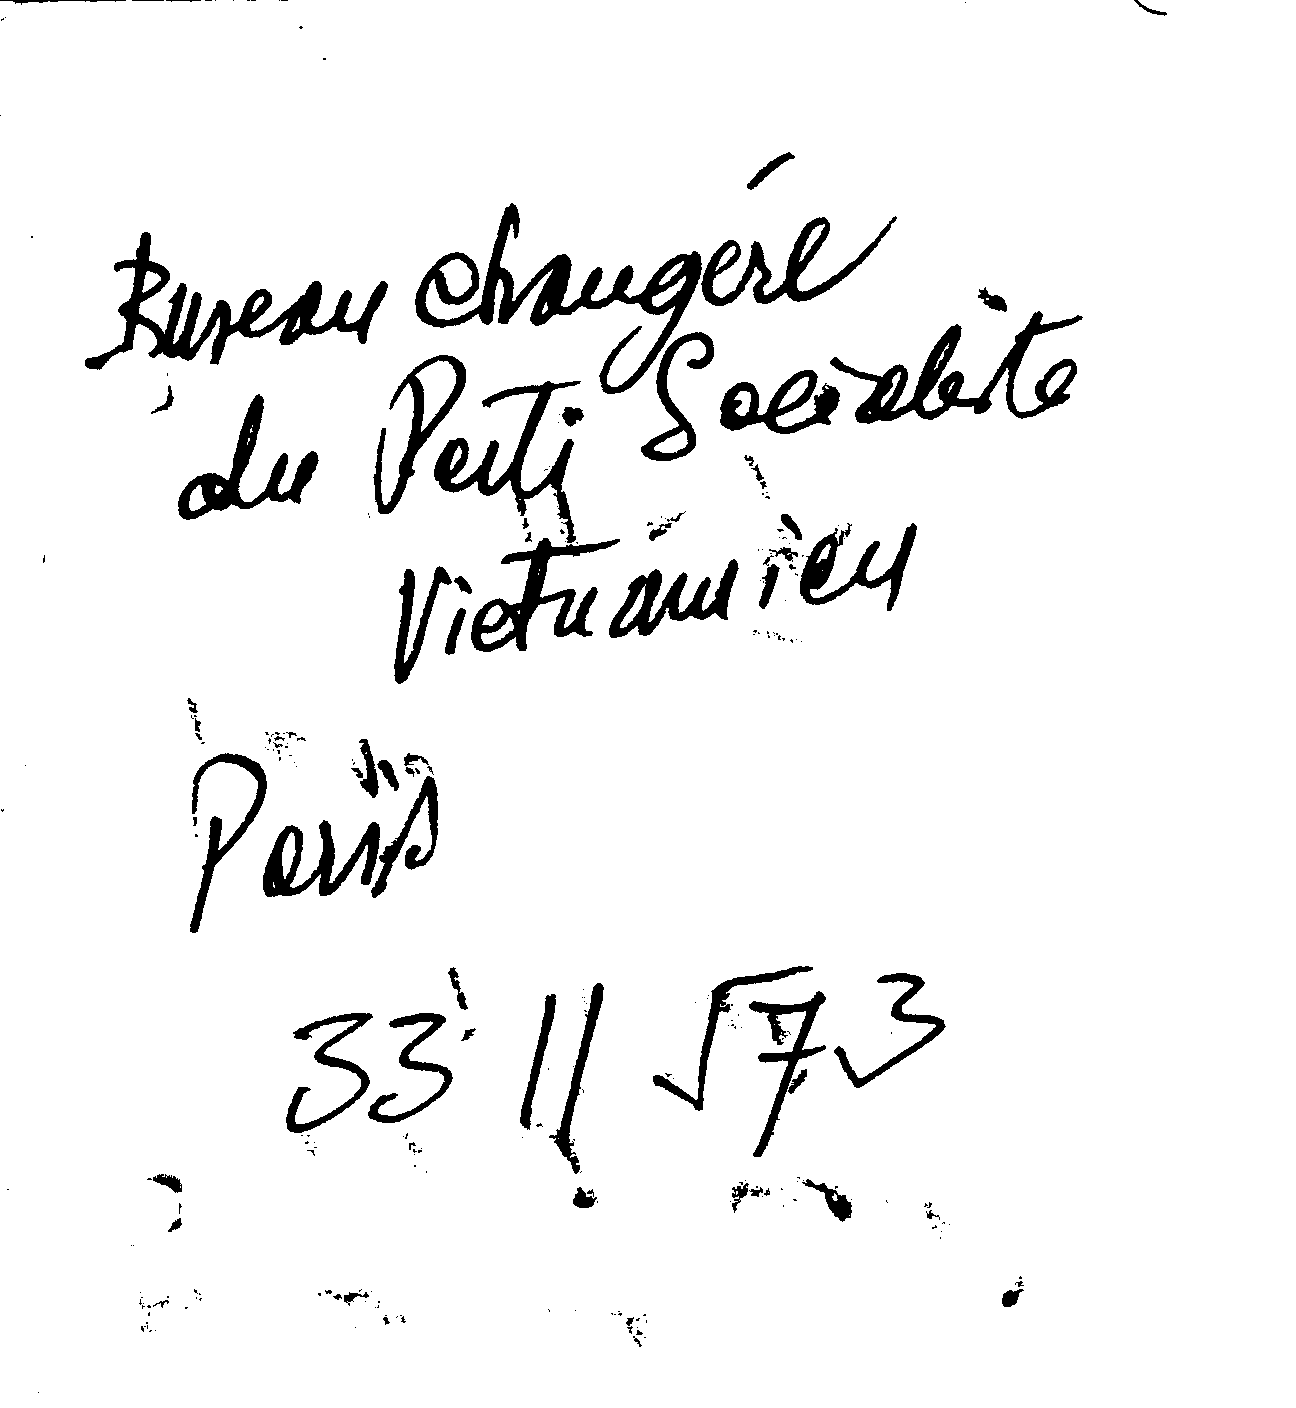 Bureau changéré
du Parti Socialiste
Vietnamien
Paris
33 11 573